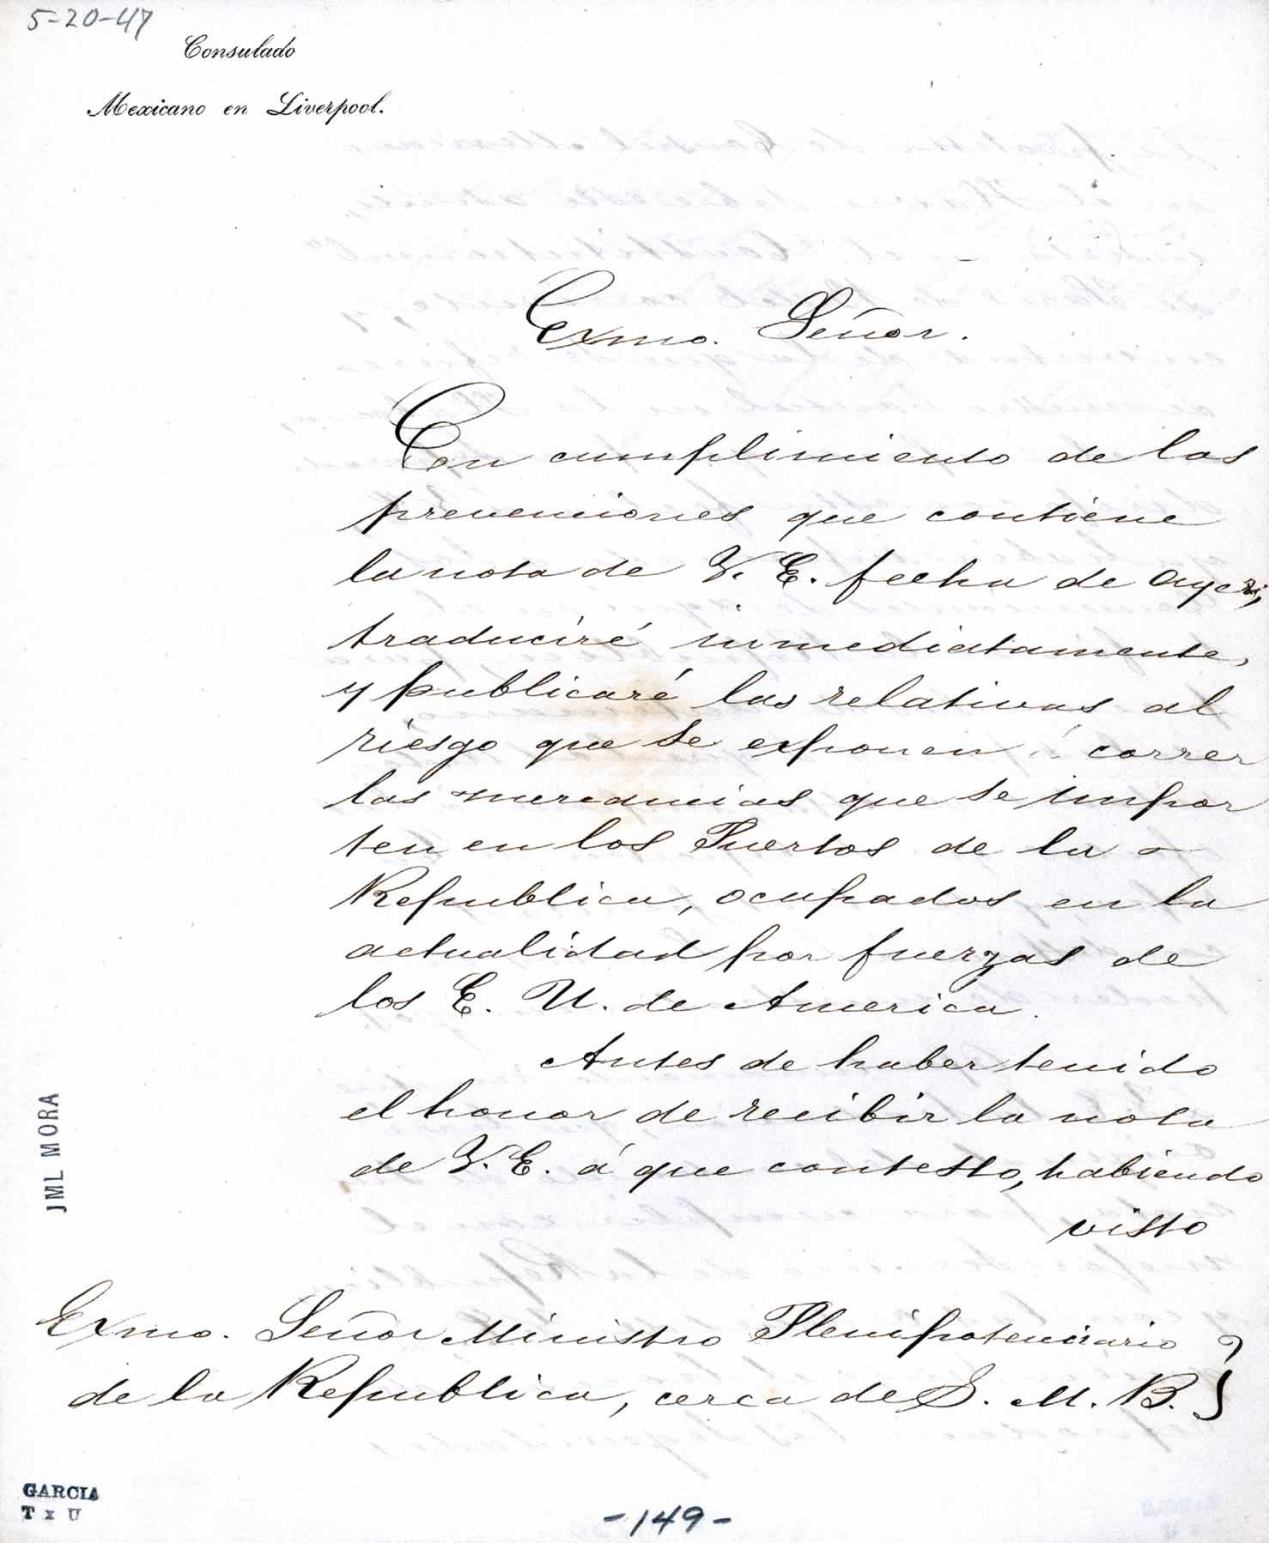 5-20-47
Consulado
Mexicano en Liverpool.
Exmo. Señor.
En cumplimiento de las
prevenciones que contiene
la nota de V. E. fecha de ayer,
traduciré inmediatamente,
y publicaré las relativas al
riesgo que se exponen á correr
las mercancias que se impor
ten en los Puertos de la
Republica, ocupados en la
actualidad por fuerzas de
los E. U. de America.
Antes de haber tenido
el honor de recibir la nota
de V. E. á que contesto, habiendo
visto
Exmo. Señor Ministro Plenipotenciario
de la Republica, cerca de S. M. B.
JML MORA
GARCIA
T x U
-149-